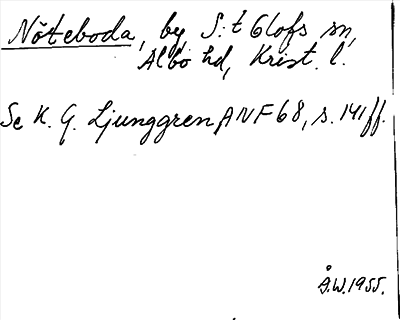 Nöteboda, by S:t Olofs sn,
Albo hd, Krist. l.
Se K. G. Ljunggren ANF 68, s. 141 ff.
Å.W. 1955.